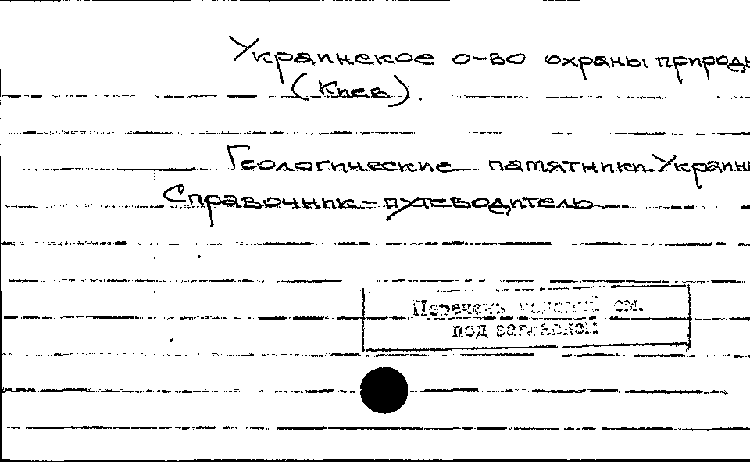 Украинское о-во охраны природы
(Киев).
Геологические памятники Украины
Справочник-путеводитель
Перечень изданий см.
под заглавием